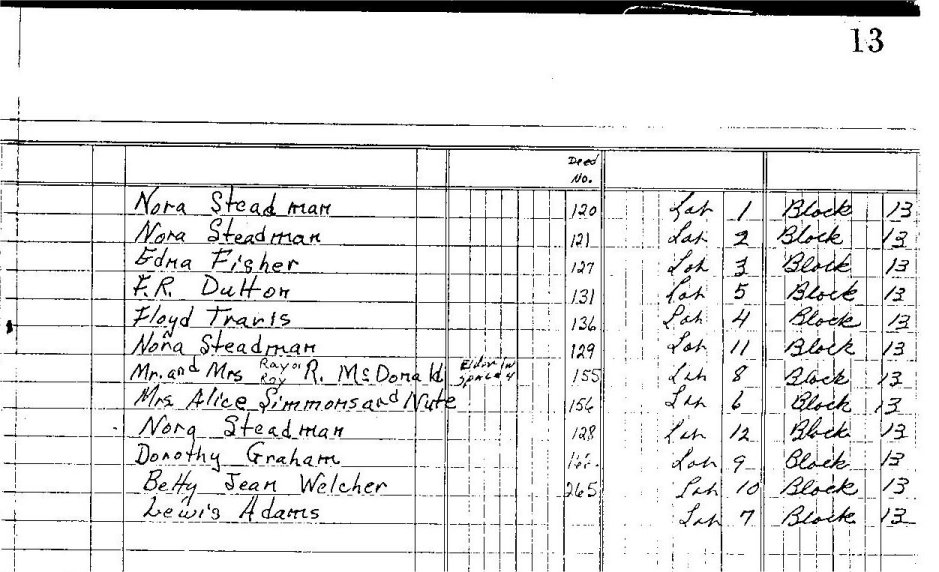 13
Deed No.
Nora Steadman 120 Lot 1 Block 13
Nora Steadman 121 Lot 2 Block 13
Edna Fisher 127 Lot 3 Block 13
F.R. Dutton 131 Lot 5 Block 13
Floyd Travis 136 Lot 4 Block 13
Nora Steadman 129 Lot 11 Block 13
Mr. and Mrs Ray or Roy R. McDonald space 4 155 Lot 8 Block 13
Mrs. Alice Simmons and Nute 156 Lot 6 Block 13
Nora Steadman 128 Lot 12 Block 13
Dorothy Graham Lot 9 Block 13
Betty Jean Welcher 265 Lot 10 Block 13
Lewis Adams Lot 7 Block 13